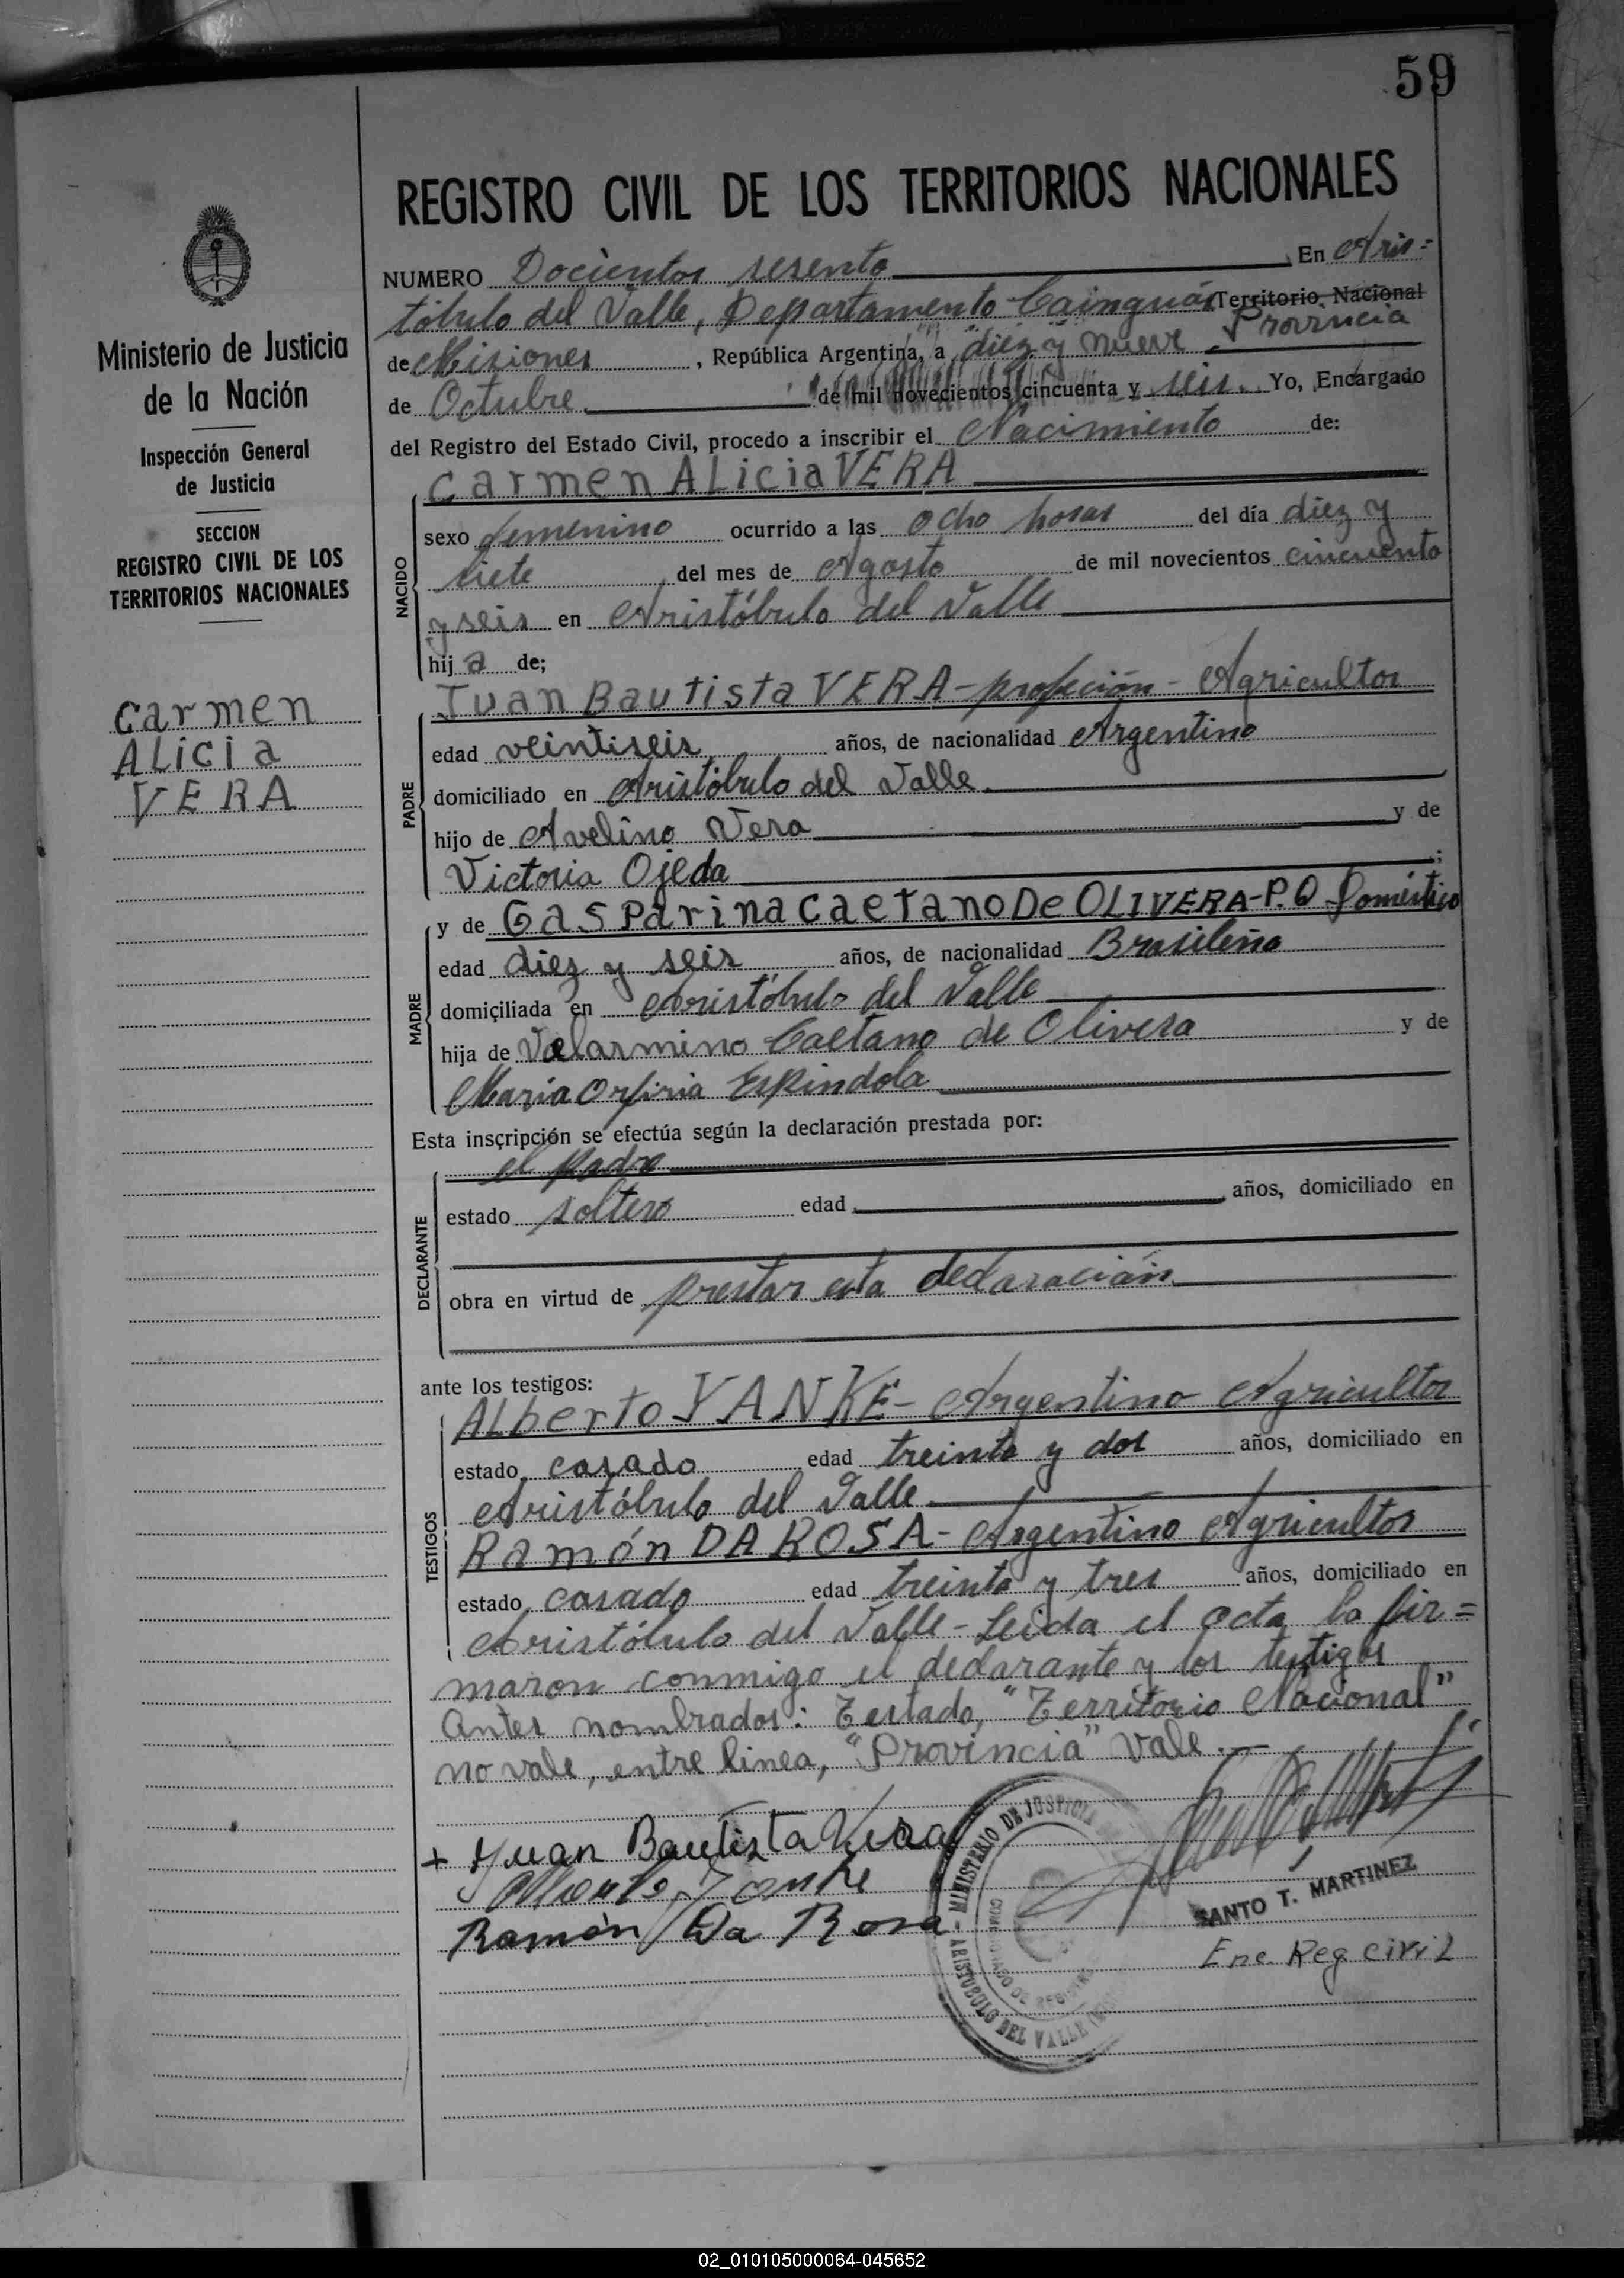 59
REGISTRO CIVIL DE LOS TERRITORIOS NACIONALES
NUMERO Docientos sesenta En Aris=
tóbulo del Valle, Departamento Cainguás Territorio Nacional
Provincia
de Misiones, República Argentina, a diez y nueve
de Octubre de mil novecientos cincuenta y seis. Yo, Encargado
del Registro del Estado Civil, procedo a inscribir el Nacimiento de:
Carmen ALicia VERA
NACIDO
sexo femenino ocurrido a las ocho horas del día diez y
siete del mes de Agosto de mil novecientos cincuenta
y seis en Aristóbulo del Valle
hija de;
PADRE
Juan Bautista VERA - profeción - Agricultor
edad veintiseis años, de nacionalidad Argentino
domiciliado en Aristóbulo del Valle.
hijo de Avelino Vera y de
Victoria Ojeda;
MADRE
y de Gasparina Caetano De OLIVERA-P.Q. Doméstico
edad diez y seis años, de nacionalidad Brasileña
domiciliada en Aristóbulo del Valle
hija de Valarmino Caetano de Olivera y de
María Orfiria Espindola
Esta inscripción se efectúa según la declaración prestada por:
DECLARANTE
el padre
estado soltero edad años, domiciliado en
obra en virtud de prestar esta declaración
ante los testigos:
TESTIGOS
ALberto YANKE - Argentino Agricultor
estado casado edad treinta y dos años, domiciliado en
Aristóbulo del Valle.
Ramón DA ROSA - Argentino Agricultor
estado casado edad treinta y tres años, domiciliado en
Aristóbulo del Valle - Leida el acta la fir=
maron conmigo el declarante y los testigos
antes nombrados: Testado, "Territorio Nacional"
no vale, entre linea, "Provincia" vale.
+ Juan Bautista Vera
Alberto Yanke
Ramón Da Rosa
MINISTERIO DE JUSTICIA
ARISTOBULO DEL VALLE
SANTO T. MARTINEZ
Enc. Reg civil
Ministerio de Justicia
de la Nación
Inspección General
de Justicia
SECCION
REGISTRO CIVIL DE LOS
TERRITORIOS NACIONALES
Carmen
ALicia
VERA
02_010105000064-045652